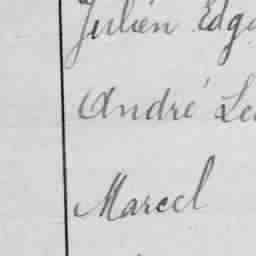 Julien Edg
André Le
Marcel